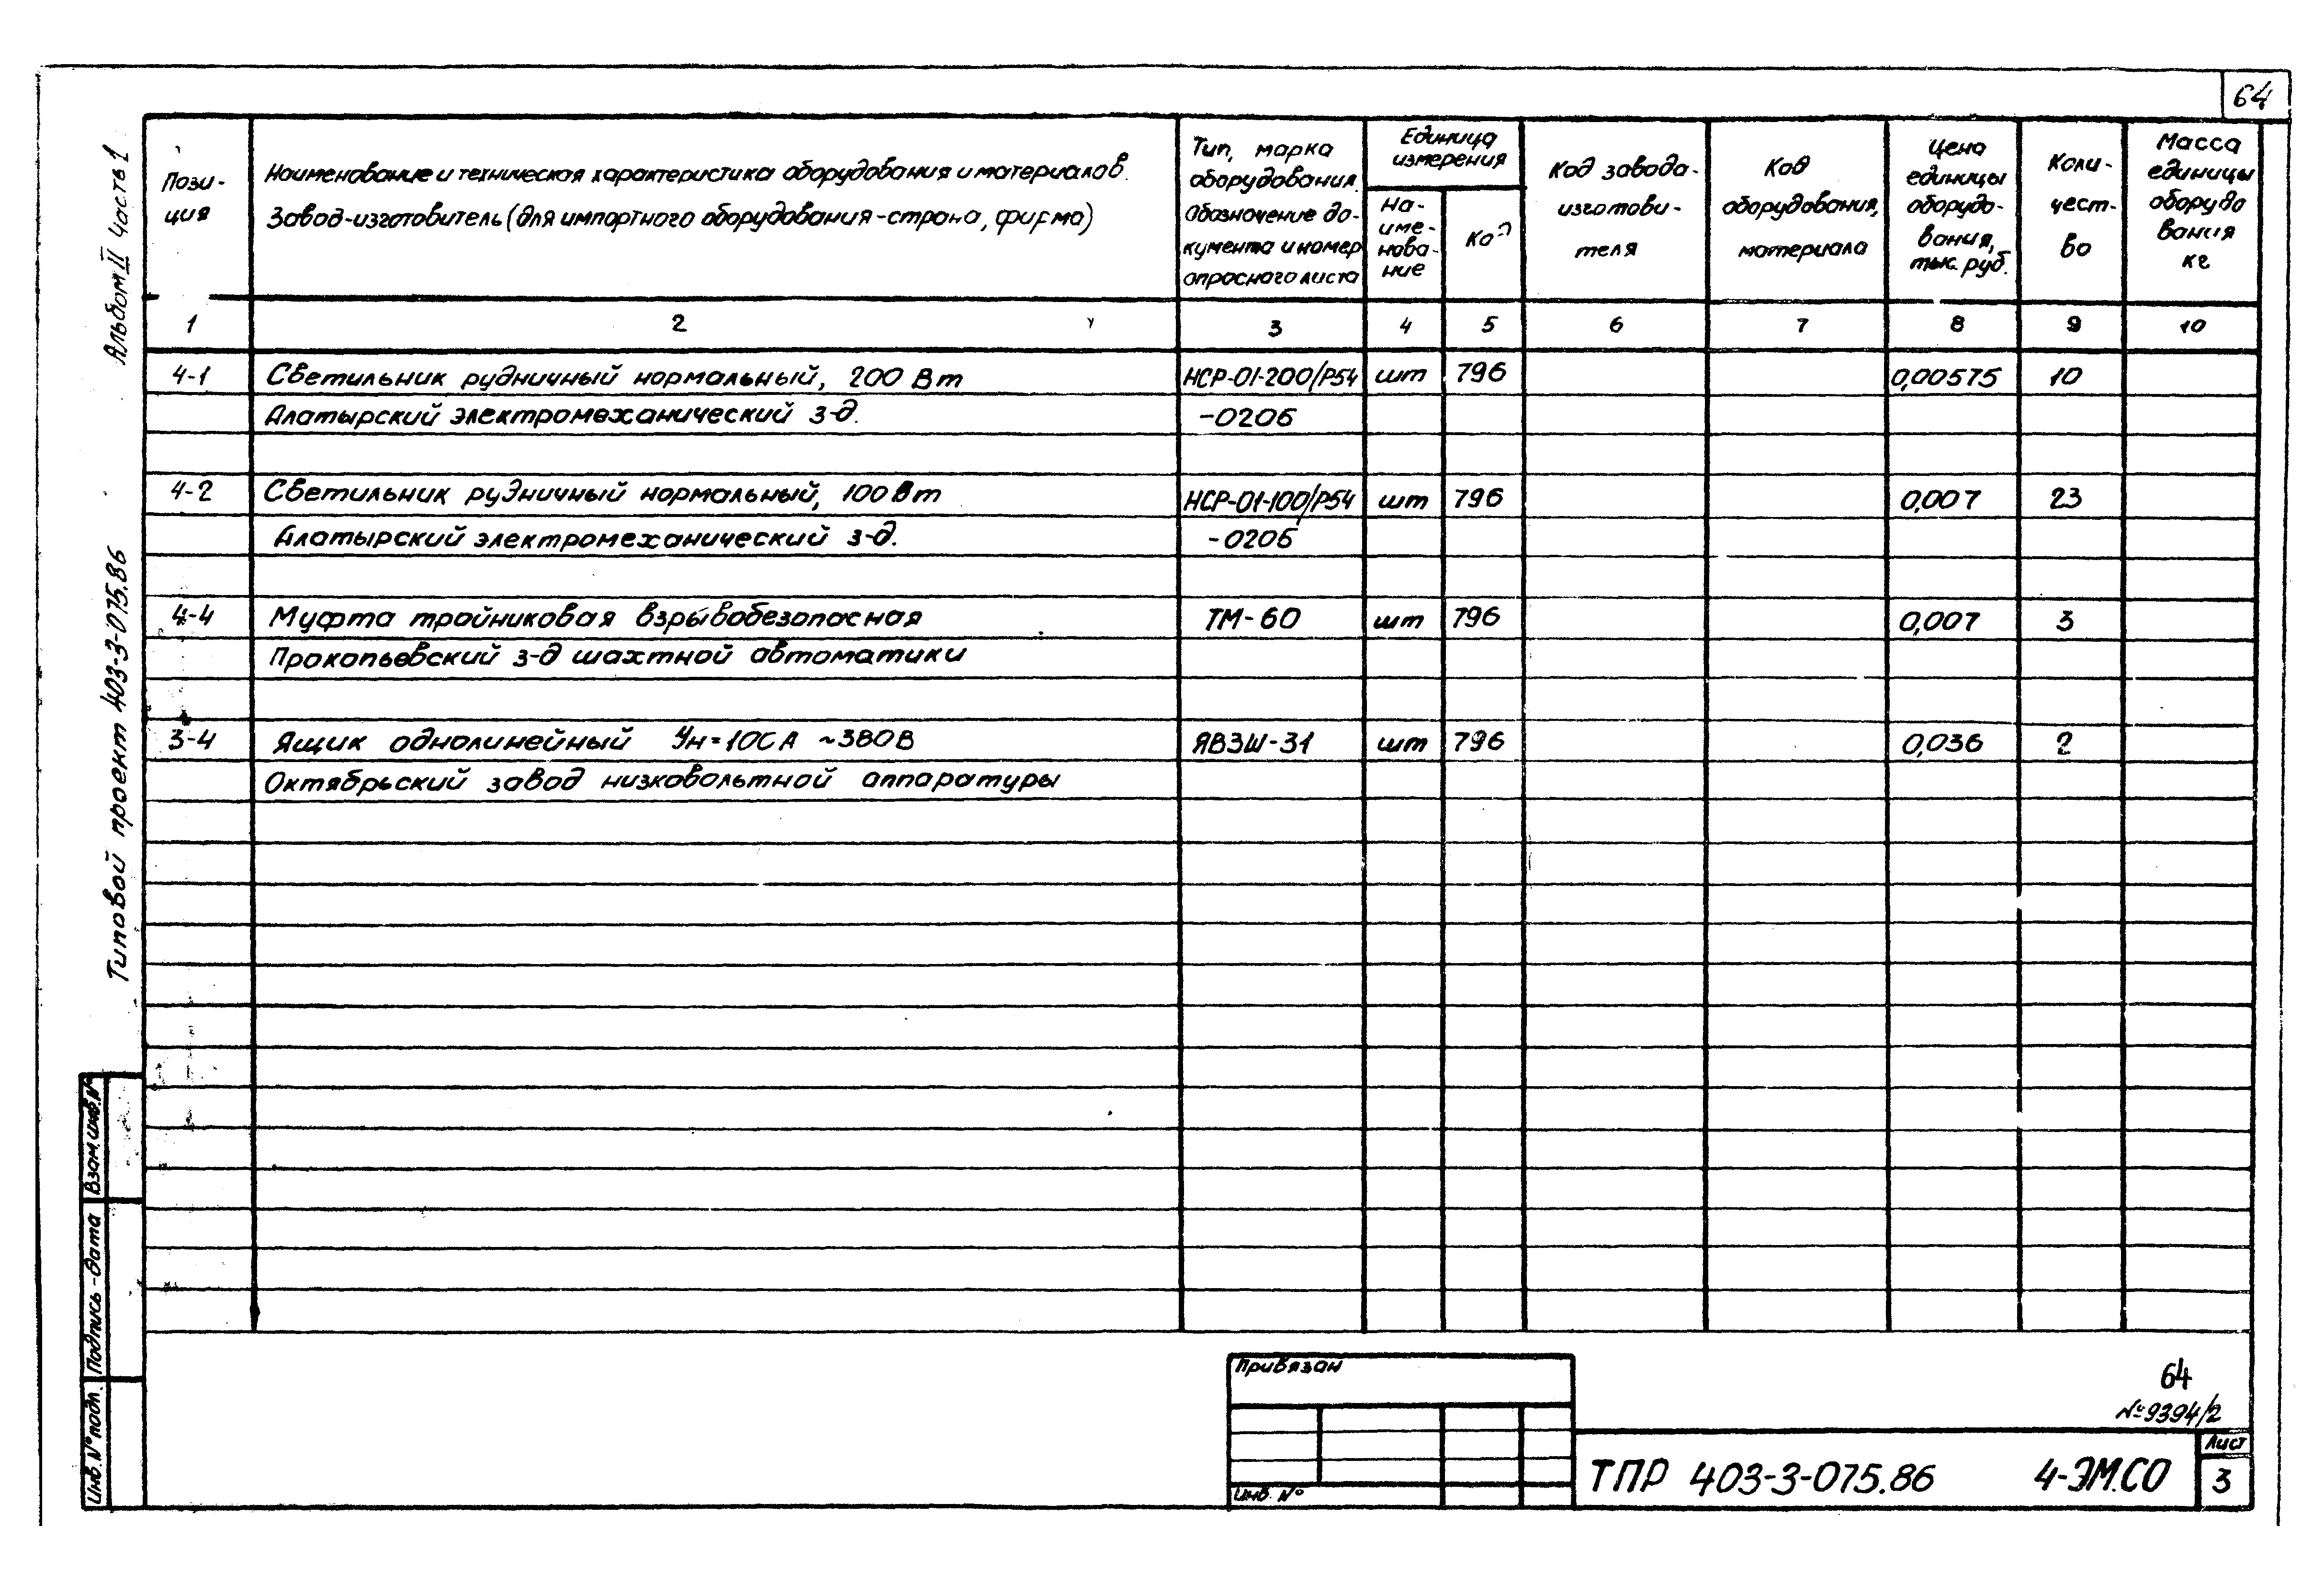 64
Альбом II Часть 1
Типовой проект 403-3-075.86
Пози-
ция
Наименование и техническая характеристика оборудования и материалов.
Завод-изготовитель (для импортного оборудования-страна, фирма)
Тип, марка
оборудования.
Обозначение до-
кумента и номер
опросного листа
Единица
измерения
На-
име-
нова-
ние
Код завода-
изготови-
теля
Код
оборудования,
материала
Цена
единицы
оборудо-
вания,
тыс. руб.
Коли-
чест-
во
Масса
единицы
оборудо
вания
кг
1 2 3 4 5 6 7 8 9 10
4-1 Светильник рудничный нормальный, 200 Вт НСР-01-200/Р54 шт 796 0,00575 10
Алатырский электромеханический з-д. -020Б
4-2 Светильник рудничный нормальный, 100 Вт НСР-01-100/Р54 шт 796 0,007 23
Алатырский электромеханический з-д. -020Б
4-4 Муфта тройниковая взрывобезопасная ТМ-60 шт 796 0,007 3
Прокопьевский з-д шахтной автоматики
3-4 Ящик однолинейный Ун=100А ~380В ЯВЗШ-31 шт 796 0,036 2
Октябрьский завод низковольтной аппаратуры
Взам. инв. №
Подпись-дата
Инв. № подл.
Привязан
Инв. №
64
№9394/2
ТПР 403-3-075.86 4-ЭМ.СО
Лист
3